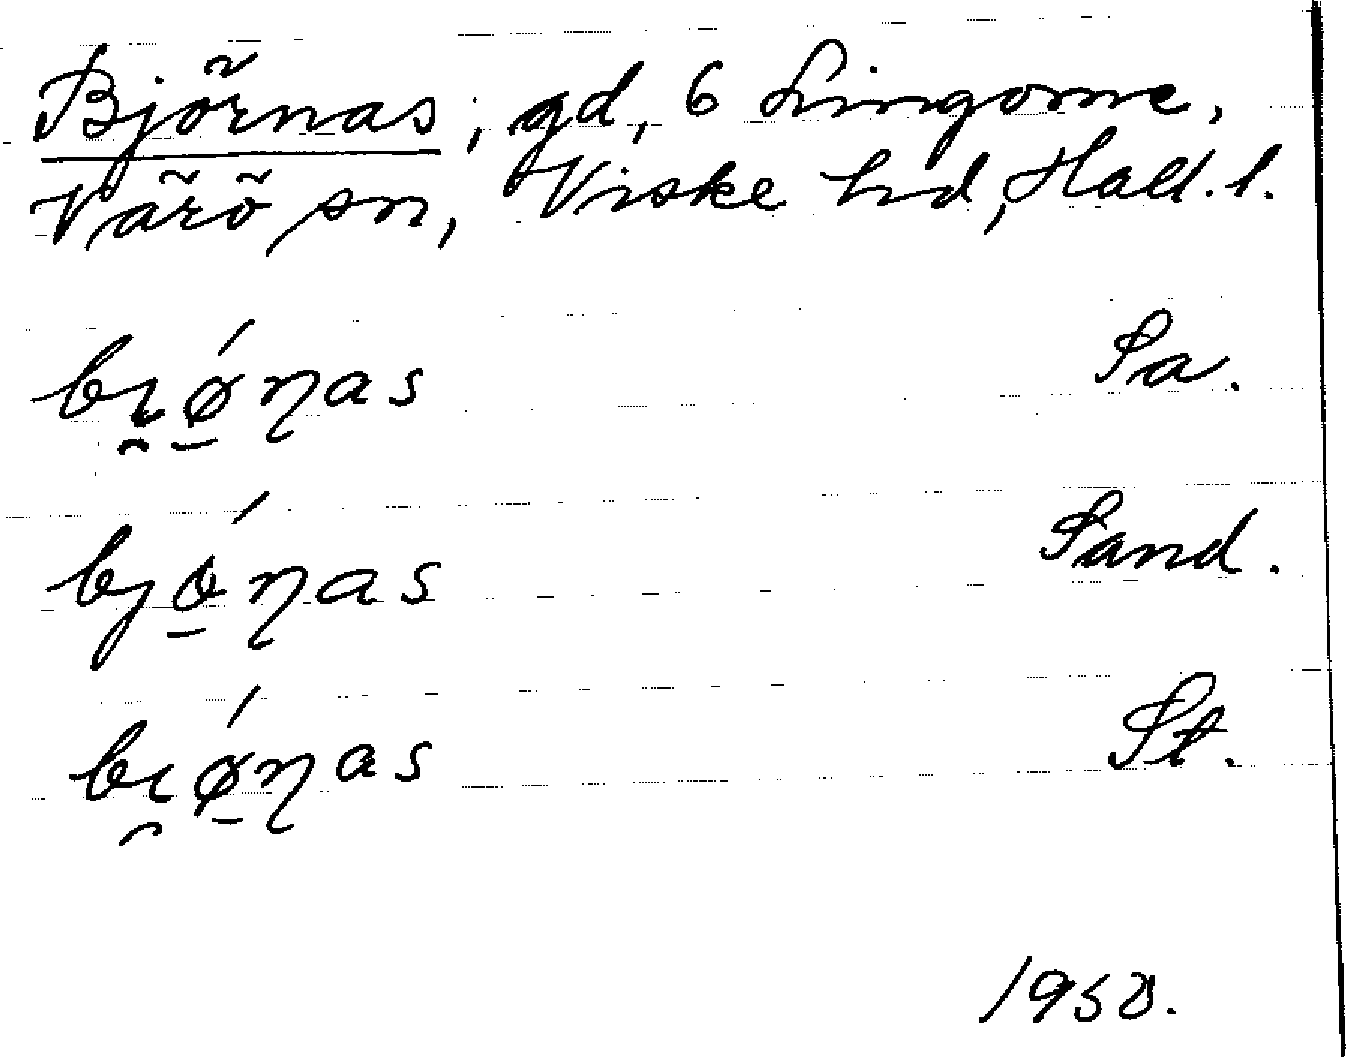 Björnas, gd, 6 Lingome,
Värö sn, Viske hd, Hall. l.
bɩ̯ǿ̠ɳas Sa.
bjǿ̠ɳas Sand.
bɩ̯ǿ̠ɳas St.
1950.